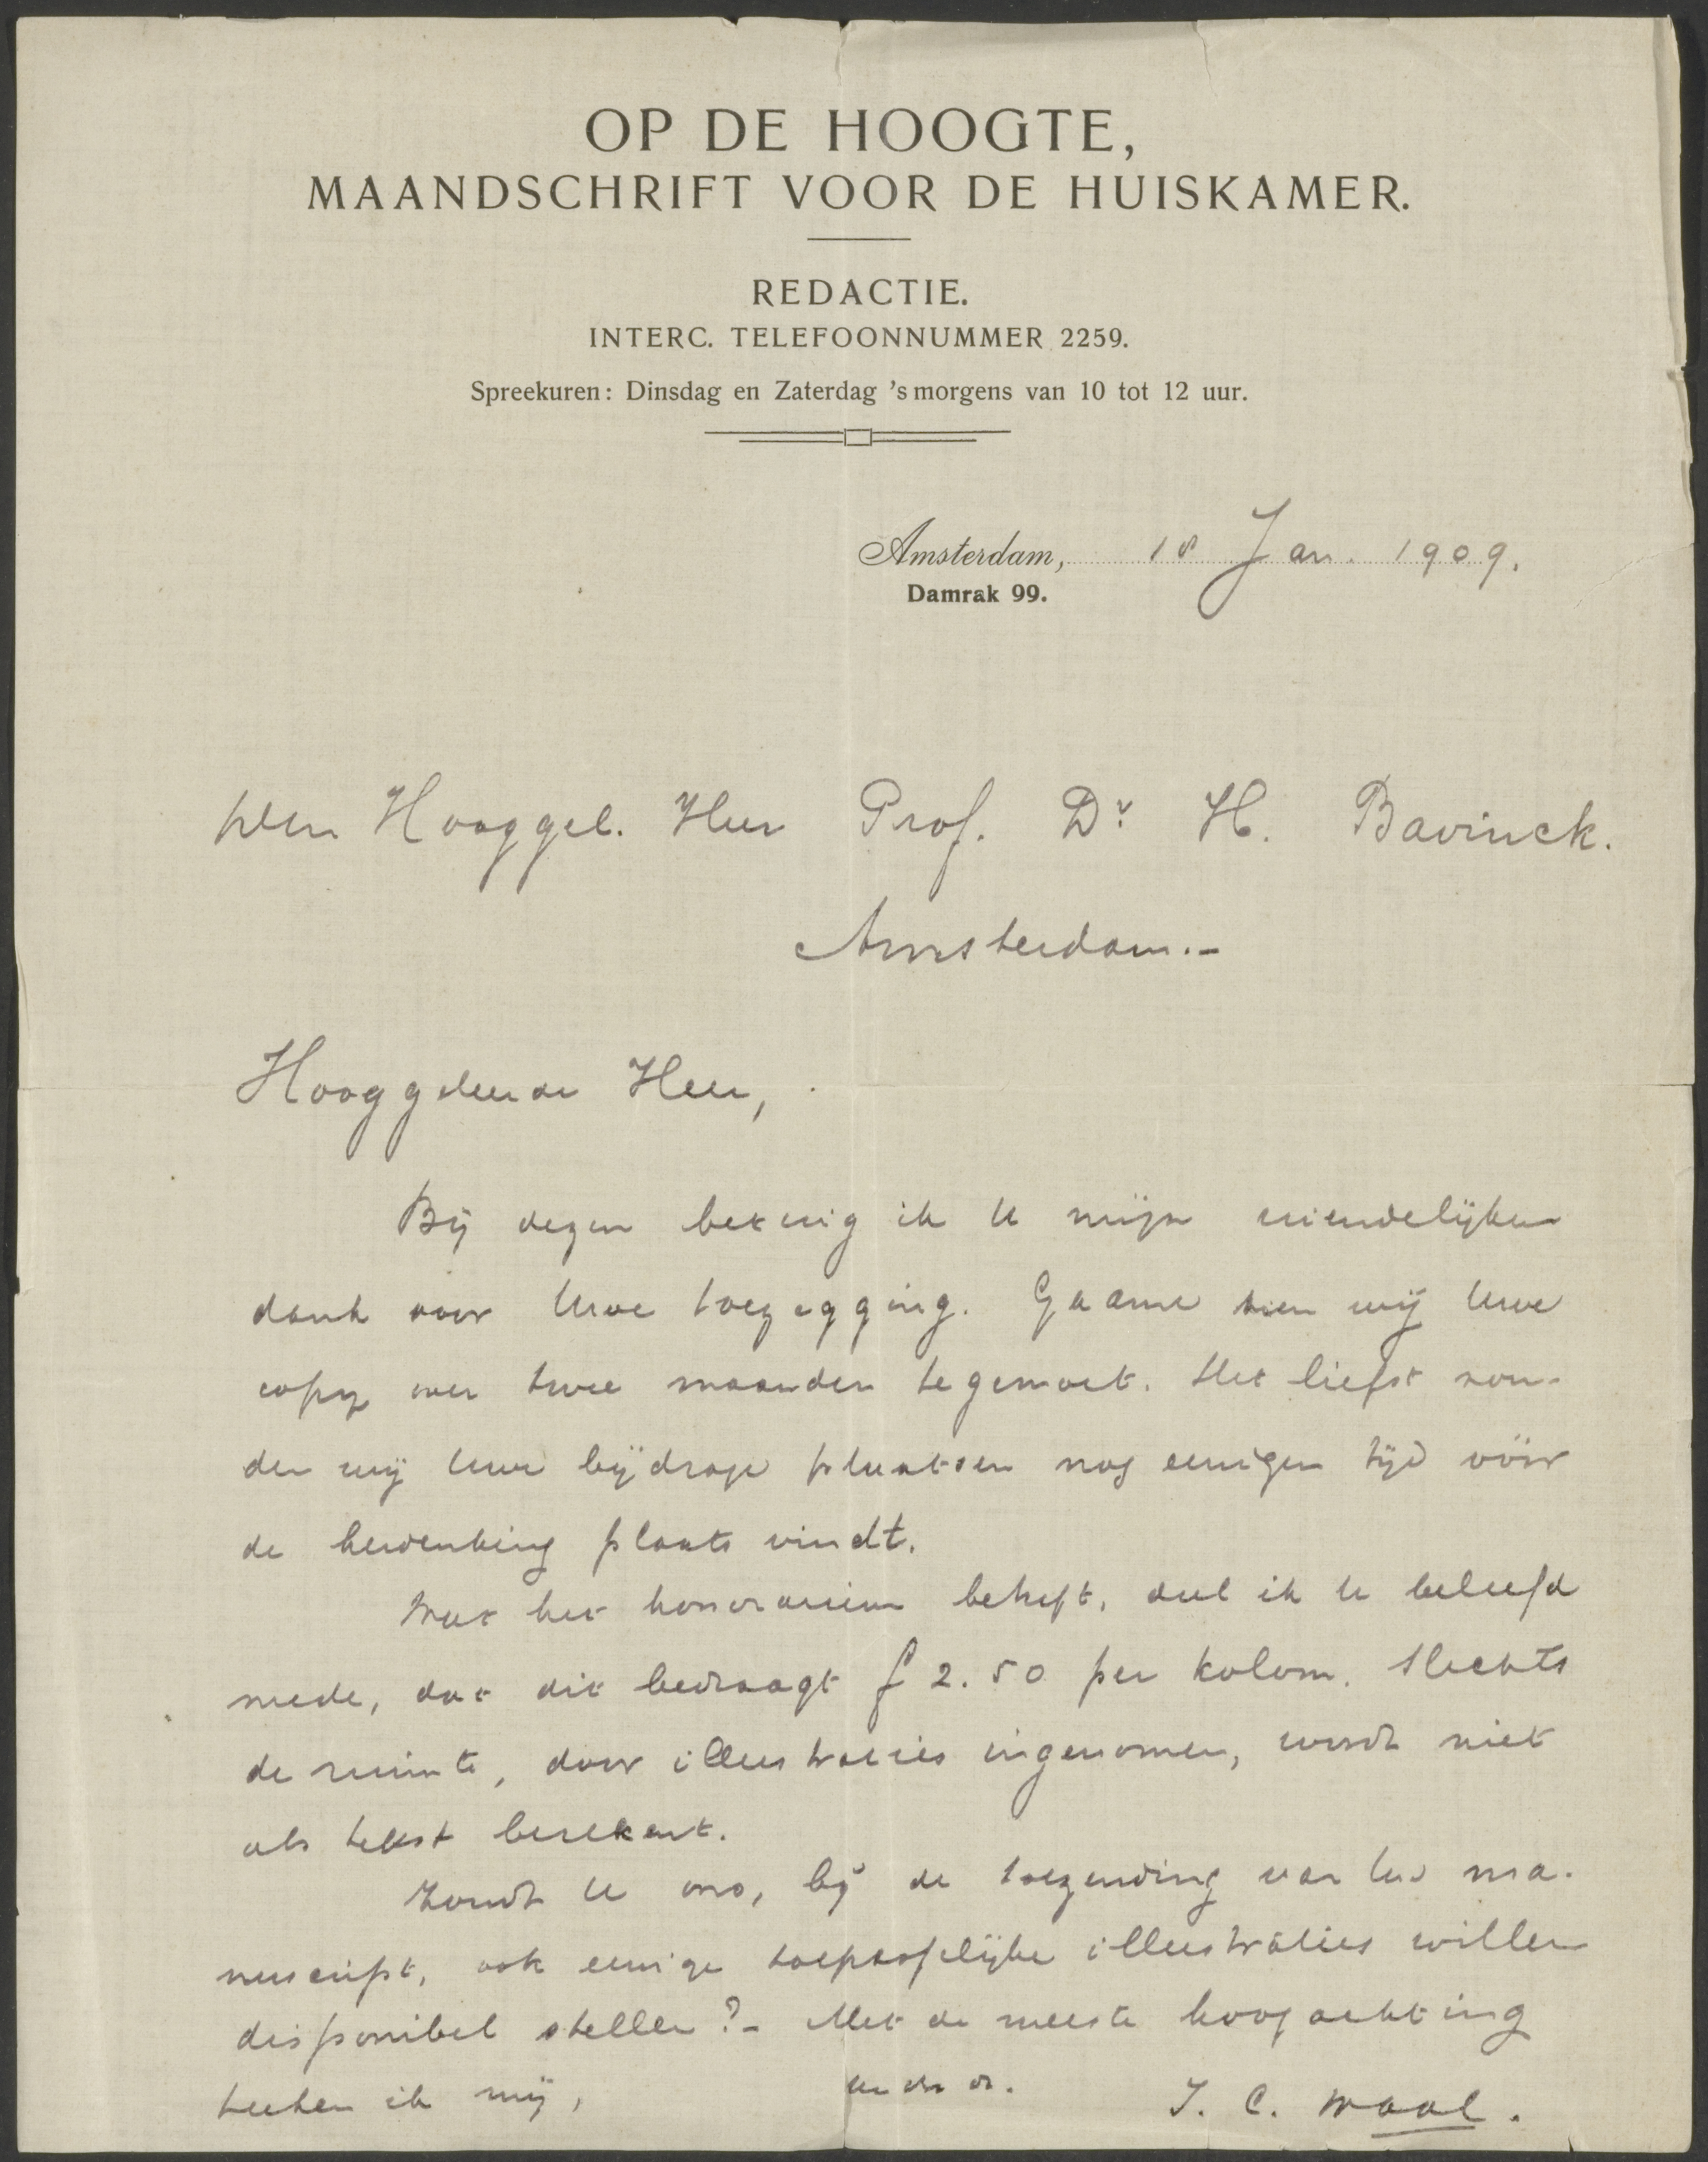 OP DE HOOGTE,
MAANDSCHRIFT VOOR DE HUISKAMER.
REDACTIE.
INTERC. TELEFOONNUMMER 2259.
Spreekuren: Dinsdag en Zaterdag 's morgens van 10 tot 12 uur.
Amsterdam, 18 Jan. 1909.
Damrak 99.
Den Hooggel. Heer Prof. Dr. H. Bavinck.
Amsterdam.-
Hooggeleerde Heer,
Bij dezen betuig ik U mijn vriendelijken
dank voor Uwe toezegging. Gaarne zien wij Uwe
copy over twee maanden tegemoet. Het liefst zou-
den wij Uwe bijdrage plaatsen nog eenigen tijd vóór
de herdenking plaats vindt.
Wat het honorarium betreft, deel ik U beleefd
mede, dat dit bedraagt f 2.50 per kolom. Slechts
de ruimte, door illustraties ingenomen, wordt niet
als tekst berekent.
Zoudt U ons, bij de toezending van Uw ma-
nuscript, ook eenige toepasselijke illustraties willen
disponibel stellen?- Met de meeste hoogachting
teeken ik mij,
J. C. Waal.